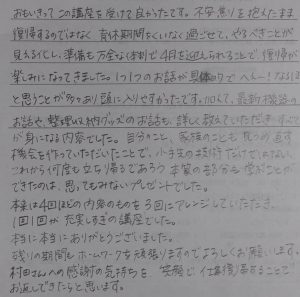 おもいきってこの講座を受けて良かったです。不安、焦りを抱えたまま
復帰するのではなく 育休期間をくいなく過ごせて、やるべきことが
見える化し、準備も万全な体制で4月を迎えられることで、復帰が
楽しみになってきました。1つ1つのお話が具体的で へぇー!なるほど
と思うことが多々あり頭に入りやすかったです。加えて、最新機器の
お話や、整理収納グッズのお話も、詳しく教えていただき すべて
が身になる内容でした。自分のこと、家族のことも 見つめ直す
機会を作っていただいたことで、小手先の技術だけではない、
これから何度も立ち帰るであろう 本質のような部分も 学ぶことが
できたのは、思ってもみないプレゼントでした。
本来は4回ほどの内容のものを3回にアレンジしていただき、
1回1回が充実しすぎの講座でした。
本当に本当にありがとうございました。
残りの期間も ホームワークを頑張りますのでよろしくお願いします。
村田さんへの感謝の気持ちを 笑顔で仕事復帰することで
お返しできたらと思います。